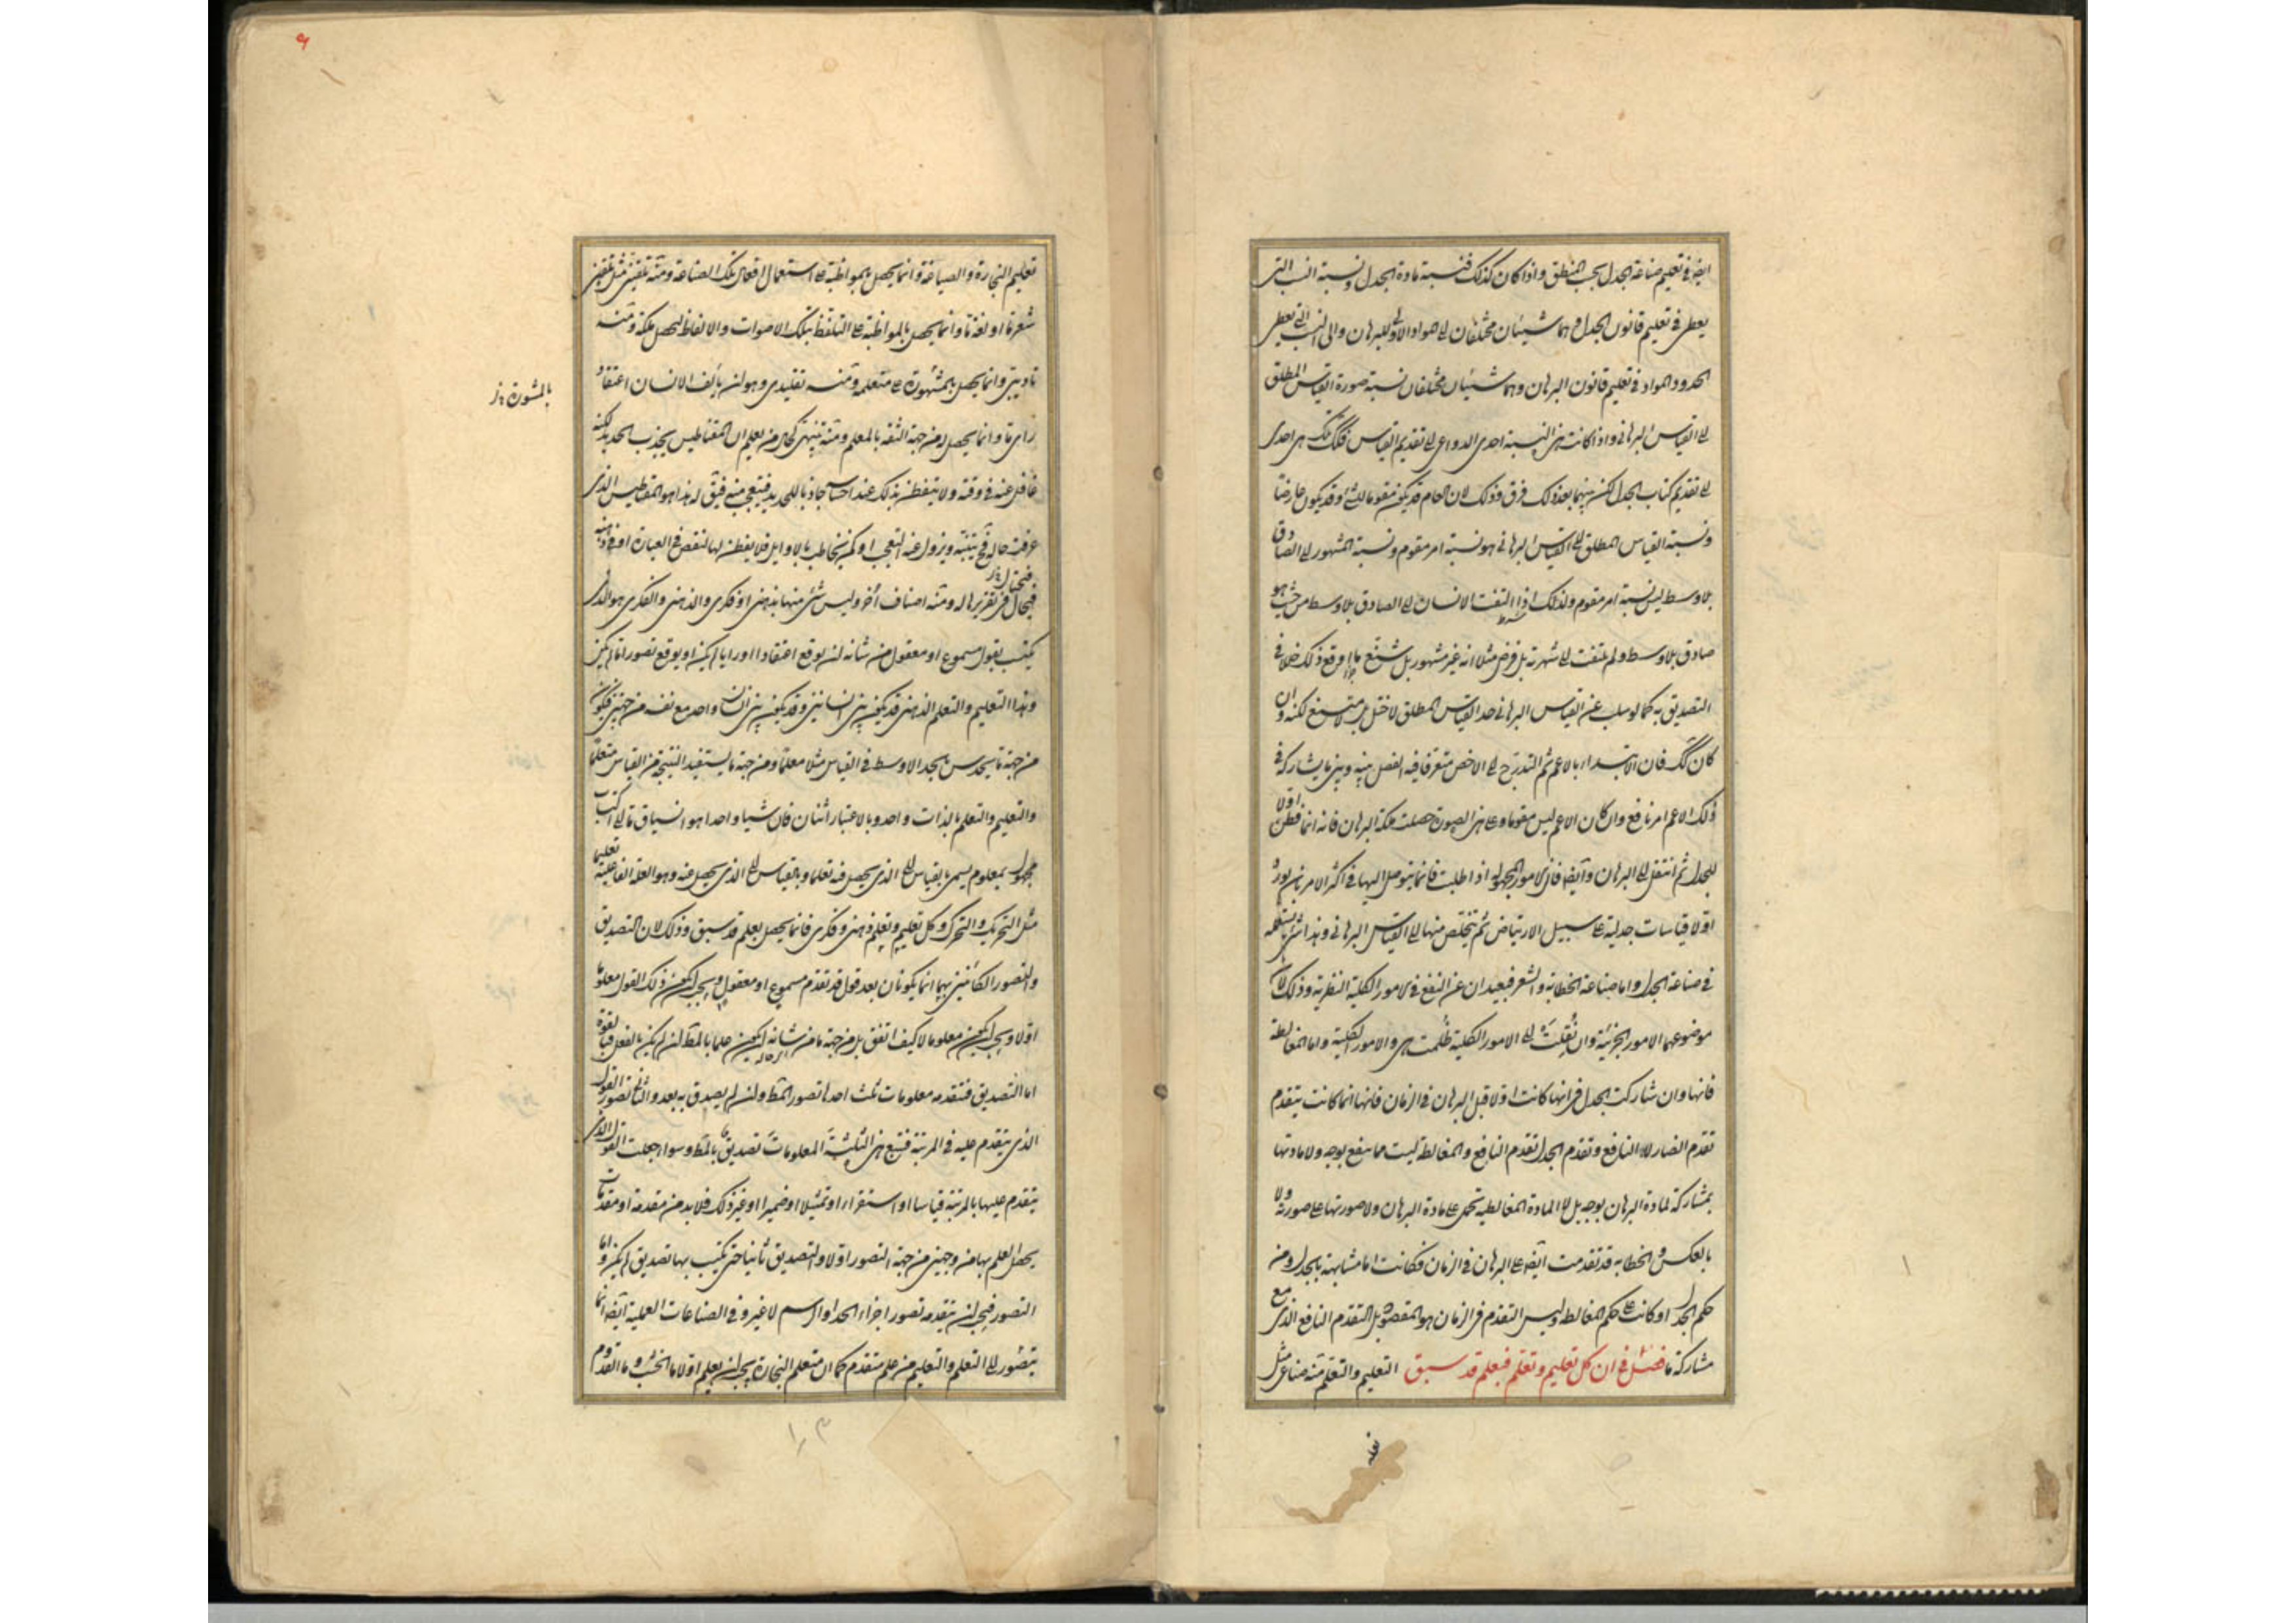 ايضا في تعليم صناعة الجدل بحسب المنطق واذا كان كذلك فنسبة مادة الجدل ونسبة النسب التي
يعطى في تعليم قانون الجدل وهما شيئان مختلفان الى المواد الاولى للبرهان والى النسب التي تعطى
الحدود والمواد في تعليم قانون البرهان وهما شيئان مختلفان نسبة صورة القياس المطلق
الى القياس البرهاني واذا كانت هذه النسبة احدى الدواعي الى تقديم القياس فكذلك تلك هي احدى
الى تقديم كتاب الجدل لكن بينهما بعد ذلك فرق وذلك لان العام قد يكون مقوما للشئ وقد يكون عارضا
ونسبة القياس المطلق الى القياس البرهاني هو نسبة امر مقوم ونسبة المشهور الى الصادق
بلا وسط ليس نسبة امر مقوم ولذلك اذا التفت الانسان الى الصادق بلا وسط من حيث هو
صادق بلا وسط ولم يلتفت الى شهرته بل فرض مثلا انه غير مشهور بل شنع ما اوقع ذلك خللا في
التصديق به كما لو سلب عن القياس البرهاني حد القياس المطلق لاختل بل لا متنع لكنه وان
كان كك فان الابتداء بالاعم ثم التدرج الى الاخص متعرفا فيه الفصل بينه وبين ما يشاركه في
ذلك الاعم امر نافع وان كان الاعم ليس مقوما وعلى هذه الصورة حصلت ملكة البرهان فانه انما فطن اولا
للجدل ثم انتقل الى البرهان وايضا فان الامور المجهولة اذا طلبت فانما يتوصل اليها في اكثر الامر بان يورد
اولا قياسات جدلية على سبيل الارتياض ثم يتخلص منها الى القياس البرهاني وهذا شئ ستعلمه
في صناعة الجدل واما صناعة الخطابة والشعر فبعيدان عن النفع في الامور الكلية النظرية وذلك لان
موضوعهما الامور الجزئية وان نقلت الى الامور الكلية ظلمت هي والامور الكلية واما المغالطة
فانها وان شاركت الجدل في انها كانت اولا قبل البرهان في الزمان فانها انما كانت يتقدم
تقدم الضار لا النافع وتقدم الجدل تقدم النافع والمغالطة ليست مما ينفع بوجه ولا مادتها
بمشاركة لمادة البرهان بوجه بل لا المادة المغالطية تحمل على مادة البرهان ولا صورتها على صورته ولا
بالعكس والخطابة قد تقدمت ايضا على البرهان في الزمان فكانت اما مشابهة بالجدل ومن
حكم الجدل او كانت على حكم المغالطة وليس التقدم في الزمان هو المقصود بل التقدم النافع الذي مع
مشاركة ما فصل في ان كل تعليم وتعلم فبعلم قد سبق التعليم والتعلم منه صناعي مثل
تعليم النجارة والصياغة وانما يحصل بالمواظبة على استعمال افعال تلك الصناعة ومنه تلقيني مثل تلقين
شعر ما او لغة ما وانما يحصل بالمواظبة على التلفظ بتلك الاصوات والالفاظ ليحصل ملكة ومنه
تاديبي وانما يحصل بالمشهورة على متعلمه ومنه تقليدي وهو ان يألف الانسان اعتقاد
بالمشورة
راي ما وانما يحصل له من جهة الثقة بالمعلم ومنه تنبيهي كحال من يعلم ان المغناطيس يجذب الحديد لكنه
غافل عنه في وقته ولا يتفطن بذلك عند احساسه جاذبا للحديد فيتعجب منه فيقال له هذا هو المقناطيس الذي
عرفت حاله فح يتنبه ويزول عنه التعجب او كمن يخاطب بالاوايل فلا يفطن لها لنقص في العبارة او في ذهنه
فيحتال
فيحال في تقريرها له ومنه اصناف أخر وليس شئ منها بذهني او فكري والذهني والفكري هو الذي
يكتسب بقول مسموع او معقول من شانه ان يوقع اعتقادا او رايا لم يكن او يوقع تصورا ما لم يكن
وهذا التعليم والتعلم الذهني قد يكون بين انسانين وقد يكون بين انسان واحد مع نفسه من جهتين فيكون
من جهة ما يحدس بالحد الاوسط في القياس مثلا معلما ومن جهة ما يستفيد النتيجة من القياس متعلما
والتعليم والتعلم بالذات واحد وبالاعتبار اثنان فان شيا واحدا هو انسياق ما الى اكتساب
مجهول بمعلوم يسمى بالقياس الى الذي يحصل فيه تعلما وبالقياس الى الذي يحصل عنه وهو العلة الفاعلية تعليما
مثل التحريك والتحرك وكل تعليم وتعلم ذهني وفكري فانما يحصل بعلم قد سبق وذلك لان التصديق
والتصور الكائنين بهما انما يكونان بعد قول قد تقدم مسموع او معقول ويجب ان يكون ذلك القول معلوما
اولا ويجب ان يكون معلوما لا كيف اتفق بل من جهة ما من شانه ان يكون علما بالمط ان لم يكن بالفعل فبالقوة
اما التصديق فتتقدمه معلومات ثلث احدها تصور المط وان لم يصدق به بعد والثاني تصور القول
الذي يتقدم عليه في المرتبة فتتبع هذه الثلثة المعلومات تصديق ما بالمط وسواء جعلت القول الذي
يتقدم عليها بالمرتبة قياسا او استقراء او تمثيلا او ضميرا او غير ذلك فلا بد من مقدمة او مقدمات
يحصل العلم بها من وجهين من جهة التصور اولا والتصديق ثانيا حتى يكتسب بها تصديق لم يكن واما
التصور فيجب ان يتقدمه تصور اجزاء الحد او الرسم لا غير وفي الصناعات العملية ايضا انما
يتصور لا التعلم والتعليم من علم متقدم كما ان متعلم النجارة يجب ان يعلم اولا ما الخشب وما القدوم